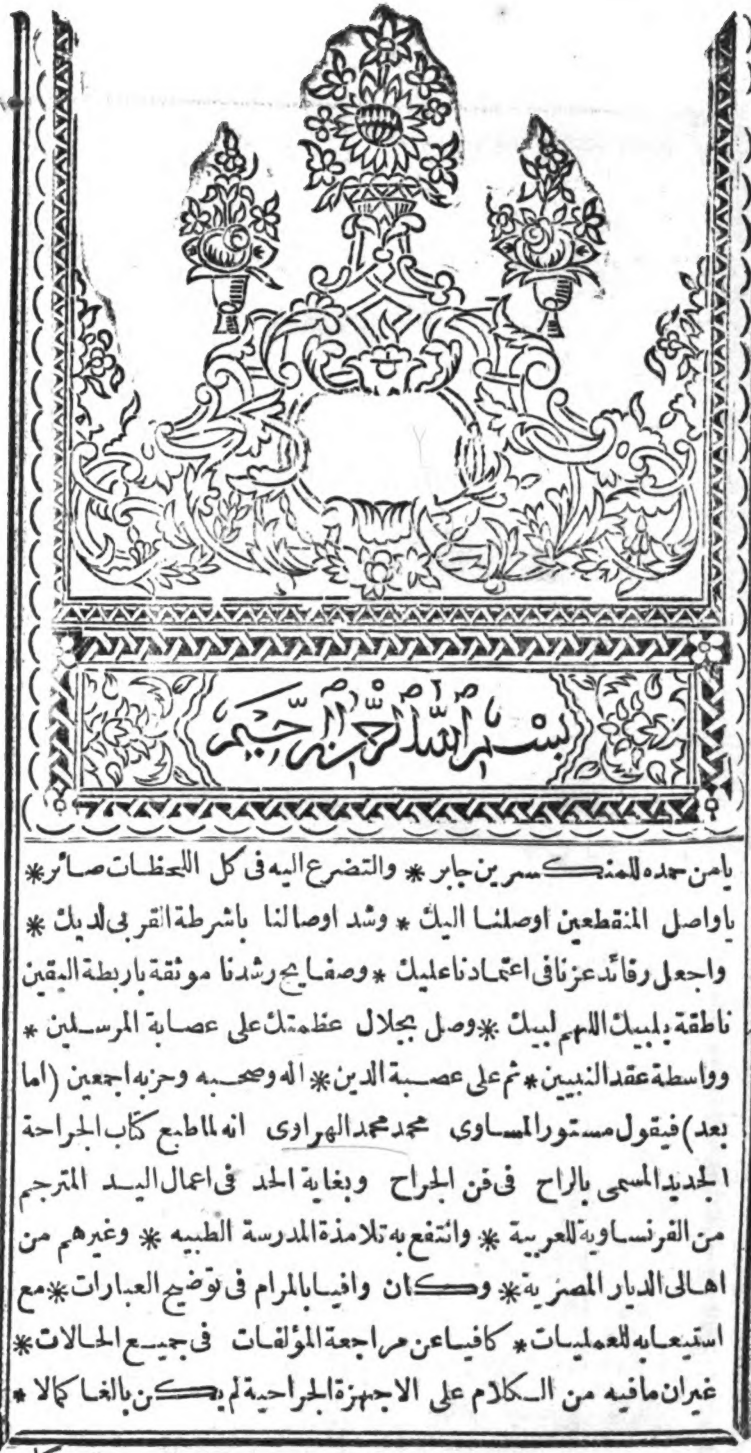 بسم الله الرحمن الرحيم
يامن حمده للمنكسرين جابر * والتضرع اليه فى كل اللحظات صائر *
ياواصل المنقطعين اوصلنا اليك * وشد اوصالنا باشرطة القربى لديك *
واجعل رفائد عزنا فى اعتمادنا عليك * وصفايح رشدنا موثقة باربطة اليقين
ناطقة بلبيك اللهم لبيك * وصل بجلال عظمتك على عصابة المرسلين *
وواسطة عقد النبيين * ثم على عصبة الدين * اله وصحبه وحزبه اجمعين (اما
بعد) فيقول مستور المساوى محمد محمد الهراوى انه لما طبع كتاب الجراحة
الجديد المسمى بالراح فى فن الجراح وبغاية الحد فى اعمال اليد المترجم
من الفرنساوية للعربية * وانتفع به تلامذة المدرسة الطبيه * وغيرهم من
اهالى الديار المصرية * وكان وافيا بالمرام فى توضيح العبارات * مع
استيعابه للعمليات * كافيا عن مراجعة المؤلفات فى جميع الحالات *
غيران مافيه من الكلام على الاجهزة الجراحية لم يكن بالغا كمالا *